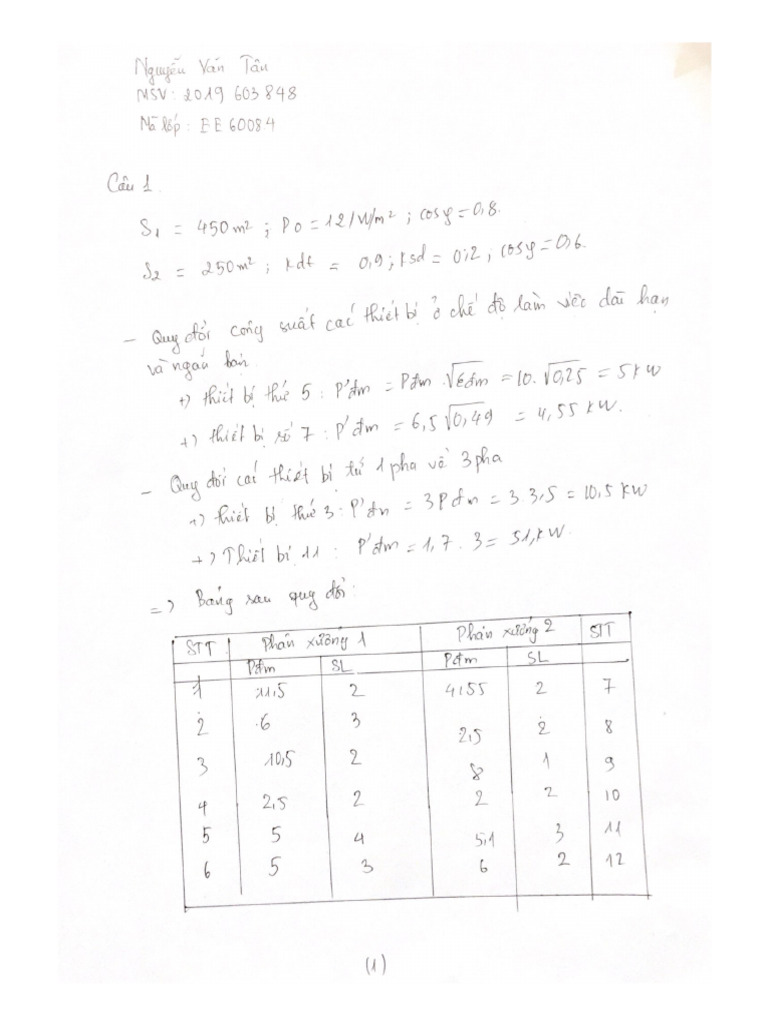 Nguyễn Văn Tân
MSV: 2019 603 848
Mã lớp: EE 6008.4
Câu 1.
S1 = 450 m²; P0 = 12 /W/m²; cosφ = 0,8.
S2 = 250 m²; kdt = 0,9; ksd = 0,2; cosφ = 0,6.
- Quy đổi công suất các thiết bị ở chế độ làm việc dài hạn
và ngắn hạn
+) thiết bị thứ 5: P'đm = Pđm . √εđm = 10. √0,25 = 5 kW
+) thiết bị số 7: P'đm = 6,5 √0,49 = 4,55 kW.
- Quy đổi các thiết bị từ 1 pha về 3 pha
+) thiết bị thứ 3: P'đm = 3 Pđm = 3. 3,5 = 10,5 kW
+) Thiết bị 11: P'đm = 1,7 . 3 = 51, kW.
=) Bảng sau quy đổi:
STT Phân xưởng 1 Phân xưởng 2 STT
Pđm SL Pđm SL
1 11,5 2 4,55 2 7
2 6 3 2,5 2 8
3 10,5 2 8 1 9
4 2,5 2 2 2 10
5 5 4 5,1 3 11
6 5 3 6 2 12
(1)